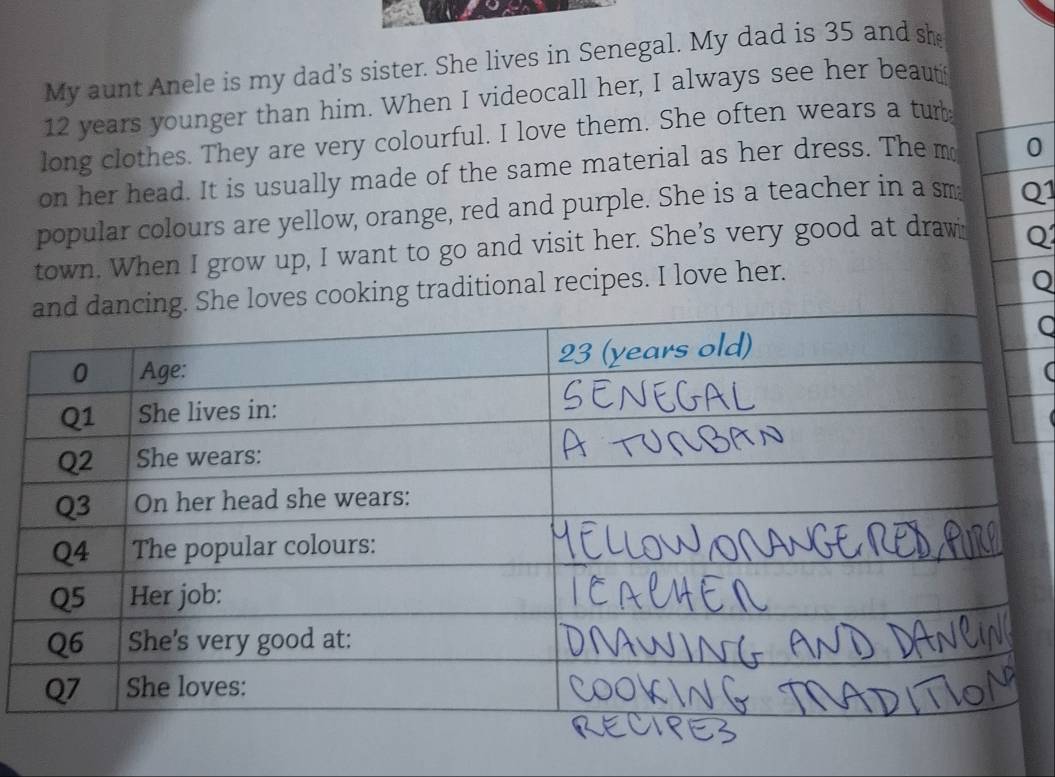 My aunt Anele is my dad's sister. She lives in Senegal. My dad is 35 and she
12 years younger than him. When I videocall her, I always see her beautif
long clothes. They are very colourful. I love them. She often wears a turba
on her head. It is usually made of the same material as her dress. The mo
popular colours are yellow, orange, red and purple. She is a teacher in a sma
town. When I grow up, I want to go and visit her. She's very good at drawin
and dancing. She loves cooking traditional recipes. I love her.
0 Age: 23 (years old)
Q1 She lives in: SENEGAL
Q2 She wears: A TURBAN
Q3 On her head she wears:
Q4 The popular colours: YELLOW, ORANGE, RED, PURP
Q5 Her job: TEACHER
Q6 She's very good at: DRAWING AND DANCING
Q7 She loves: COOKING TRADITIONA
RECIPES
0
Q1
Q2
Q
Q